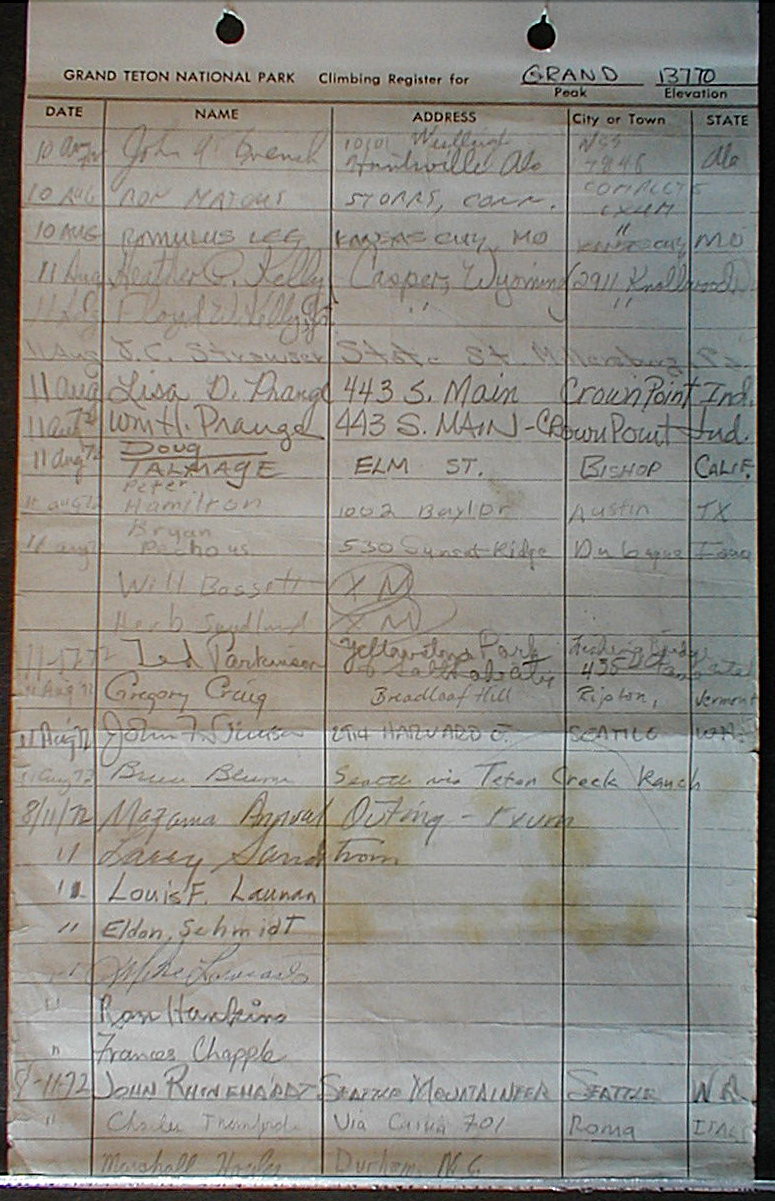 GRAND TETON NATIONAL PARK Climbing Register for GRAND 13770
Peak Elevation
DATE NAME ADDRESS City or Town STATE
10 Aug John Huntsville Ala Ala
10 AUG RON MATOUS STORRS, CONN. COMPLETE EXUM
10 AUG ROMULUS LEE KANSAS CITY, MO " KANSAS CITY MO
11 Aug Heather Kelly Casper, Wyoming (2911 Knollwood)
Floyd W. Kelly Jr. " "
11 Aug J.C. Strawser State St. Millersburg Pa.
11 aug Lisa D. Prange 443 S. Main Crown Point Ind.
11 aug 72 Wm H. Prange 443 S. MAIN - CRownPoint Ind.
11 aug 72 Doug TALMAGE ELM ST. BISHOP CALIF.
11 aug 72 Peter Hamilton 1002 Baylor Austin TX
11 aug Bryan Pechous 530 Sunset Ridge Dubuque Iowa
Will Bassett X M
Herb
72 Ted Parkinson Yellowstone Park Fishing Bridge
Salt Lake City 435
11 Aug 72 Gregory Craig Breadloaf Hill Ripton, Vermont
11 Aug 72 John 2914 HARVARD E SEATTLE WA.
11 aug 72 Bruce Blume Seattle via Teton Creek Ranch
8/11/72 Mazama Annual Outing - Exum
" Larry Sandstrom
" Louis F. Launan
" Eldon Schmidt
" Mike
" Ron Hankins
" Frances Chapple
8-11-72 JOHN RHINEHARDT SEATTLE MOUNTAINEER SEATTLE WA
" Charles Via Cassia 701 Roma ITALY
Marshall Durham, N.C.